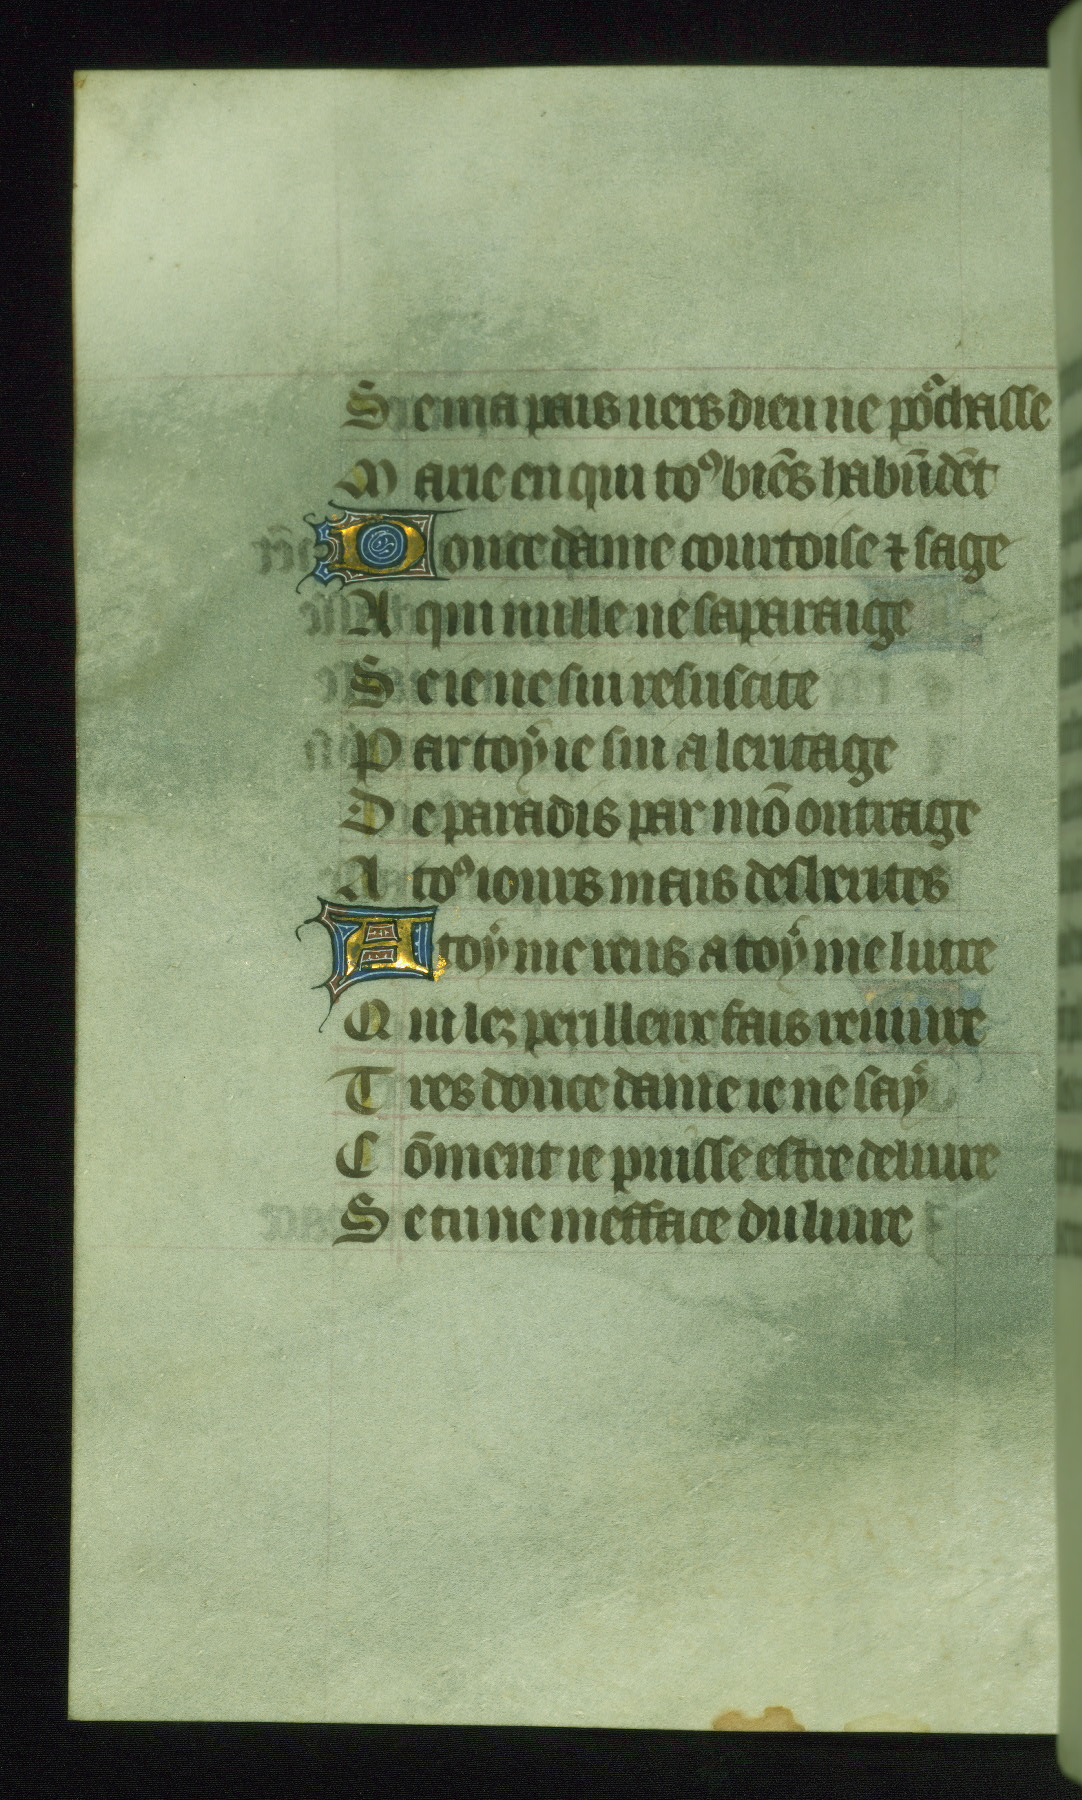 Se ma pais uers dieu ne pꝛochasse
Marie en qui toꝰ biēs habūdēt
Douce dame courtoise ⁊ sage
A qui nulle ne saparaige
Se ie ne sui resuscite
Par toy ie sui a leritage
De paradis par mō outrage
A toꝰ iours mais desherites
A toy me rens a toy me liure
Qui lez perilleux fais reuiure
Tres douce dame ie ne say
Cōment ie puisse estre deliure
Se tu ne mefface du liure